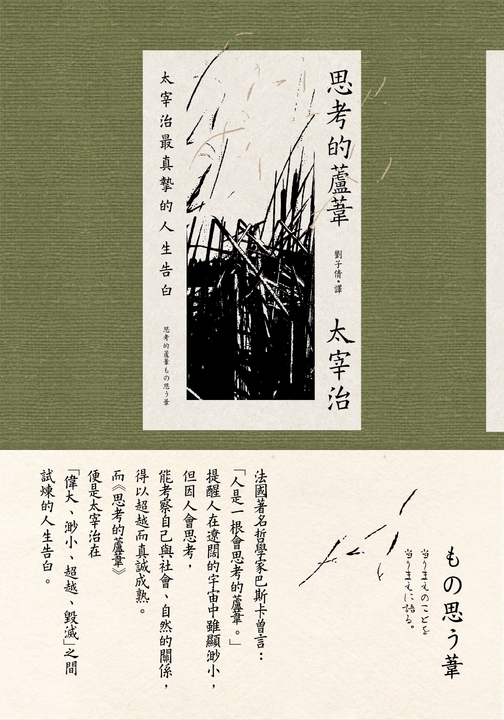 思考的蘆葦
劉子倩・譯
太宰治
太宰治最真摯的人生告白
思考的蘆葦もの思う葦
もの思う葦
当りまえのことを
当りまえに語る。
法國著名哲學家巴斯卡曾言：
「人是一根會思考的蘆葦。」
提醒人在遼闊的宇宙中雖顯渺小，
但因人會思考，
能考察自己與社會、自然的關係，
得以超越而真誠成熟。
而《思考的蘆葦》
便是太宰治在
「偉大、渺小、超越、毀滅」之間
試煉的人生告白。